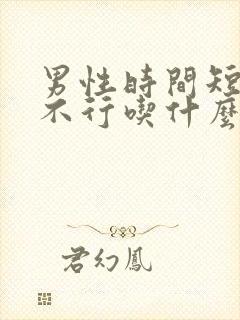 男性時間短
不行喫什麽
君幻鳳